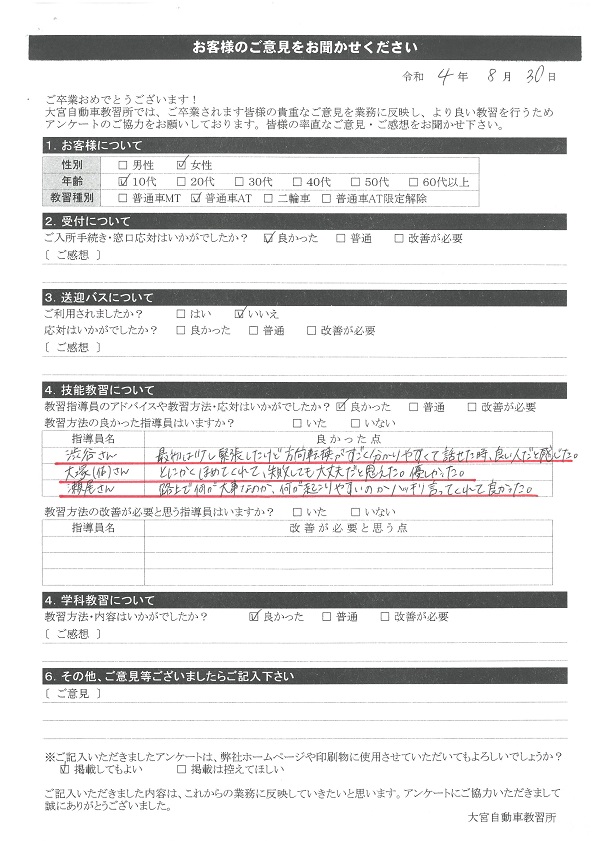 お客様のご意見をお聞かせください
令和 4 年 8 月 30 日
ご卒業おめでとうございます!
大宮自動車教習所では、ご卒業されます皆様の貴重なご意見を業務に反映し、より良い教習を行うため
アンケートのご協力をお願いしております。皆様の率直なご意見・ご感想をお聞かせ下さい。
1. お客様について
性別 □ 男性 ☑ 女性
年齢 ☑ 10代 □ 20代 □ 30代 □ 40代 □ 50代 □ 60代以上
教習種別 □ 普通車MT ☑ 普通車AT □ 二輪車 □ 普通車AT限定解除
2. 受付について
ご入所手続き・窓口応対はいかがでしたか? ☑ 良かった □ 普通 □ 改善が必要
〔 ご感想 〕
3. 送迎バスについて
ご利用されましたか? □ はい ☑ いいえ
応対はいかがでしたか? □ 良かった □ 普通 □ 改善が必要
〔 ご感想 〕
4. 技能教習について
教習指導員のアドバイスや教習方法・応対はいかがでしたか? ☑ 良かった □ 普通 □ 改善が必要
教習方法の良かった指導員はいますか? □ いた □ いない
指導員名 良かった点
渋谷さん 最初は少し緊張したけど方向転換がすごく分かりやすくて話せた時、良い人だと感じた。
大塚(佑)さん とにかくほめてくれて、失敗しても大丈夫だと思えた。優しかった。
瀬尾さん 路上で何が大事なのか、何が起こりやすいのかハッキリ言ってくれて良かった。
教習方法の改善が必要と思う指導員はいますか? □ いた □ いない
指導員名 改善が必要と思う点
4. 学科教習について
教習方法・内容はいかがでしたか? ☑ 良かった □ 普通 □ 改善が必要
〔 ご感想 〕
6. その他、ご意見等ございましたらご記入下さい
〔 ご意見 〕
※ご記入いただきましたアンケートは、弊社ホームページや印刷物に使用させていただいてもよろしいでしょうか?
☑ 掲載してもよい □ 掲載は控えてほしい
ご記入いただきました内容は、これからの業務に反映していきたいと思います。アンケートにご協力いただきまして
誠にありがとうございました。
大宮自動車教習所